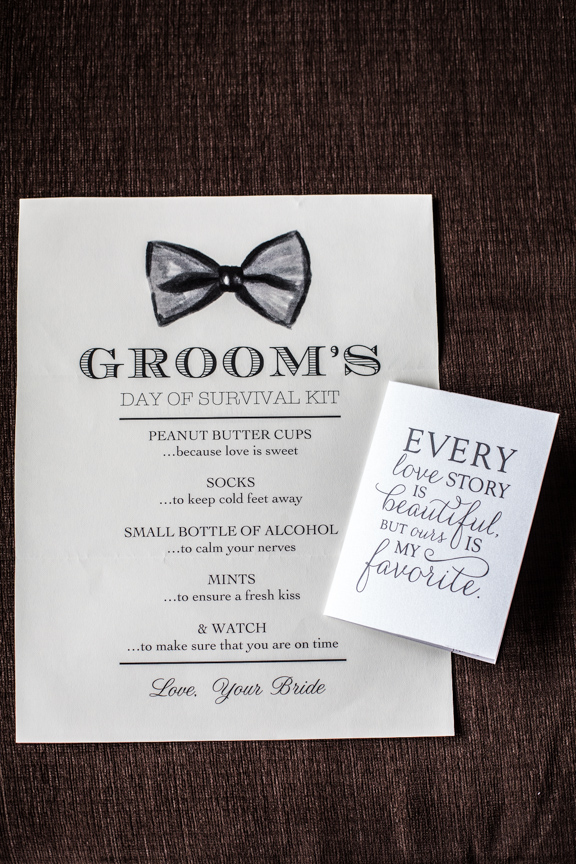 GROOM'S
DAY OF SURVIVAL KIT
PEANUT BUTTER CUPS
...because love is sweet
SOCKS
...to keep cold feet away
SMALL BOTTLE OF ALCOHOL
...to calm your nerves
MINTS
...to ensure a fresh kiss
& WATCH
...to make sure that you are on time
Love, Your Bride
EVERY
love STORY
IS
beautiful,
BUT ours IS
MY
favorite.